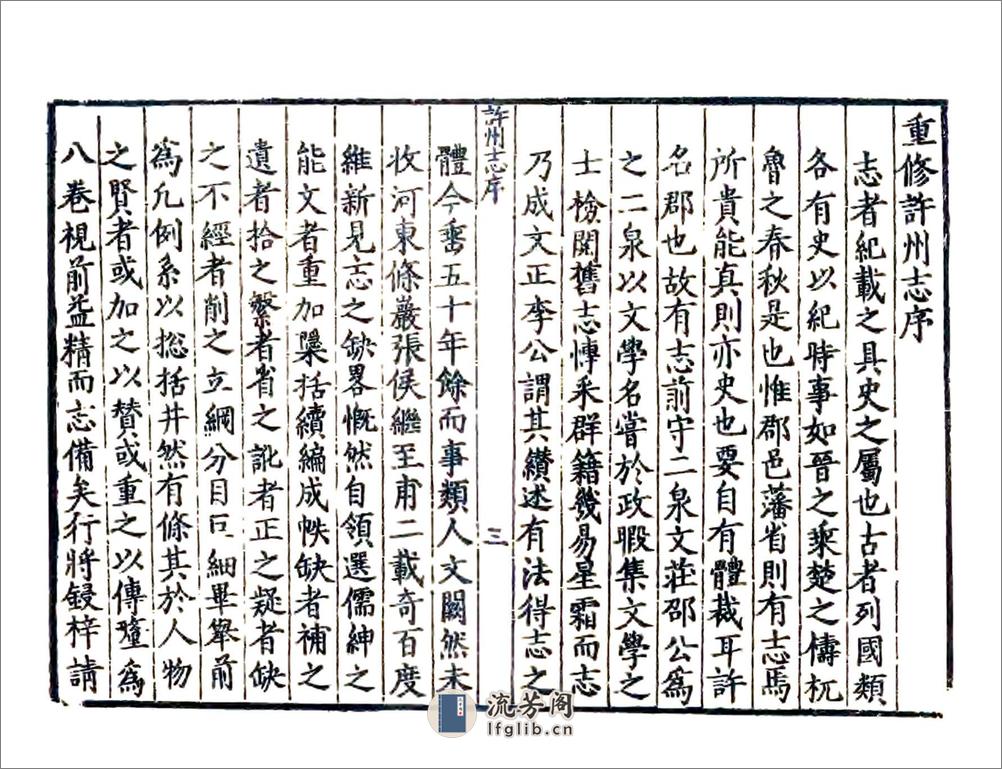 重修許州志序
志者紀載之具史之屬也古者列國類
各有史以紀時事如晉之乘楚之檮杌
魯之春秋是也惟郡邑藩省則有志焉
所貴能真則亦史也要自有體裁耳許
名郡也故有志前守二泉文莊邵公爲
之二泉以文學名當於政暇集文學之
士檢閱舊志慱釆群籍幾易星霜而志
乃成文正李公謂其纉述有法得志之
許州志序
三
體今畱五十年餘而事類人文闕然未
收河東條巖張侯繼至甫二載奇百度
維新見志之缺畧慨然自領選儒紳之
能文者重加檃括續編成帙缺者補之
遺者拾之繁者省之訛者正之疑者缺
之不經者削之立綱分目巨細畢舉前
爲凡例系以捴括井然有條其於人物
之賢者或加之以賛或重之以傳釐爲
八卷視前益精而志備矣行將鋟梓請
流芳阁
lfglib.cn